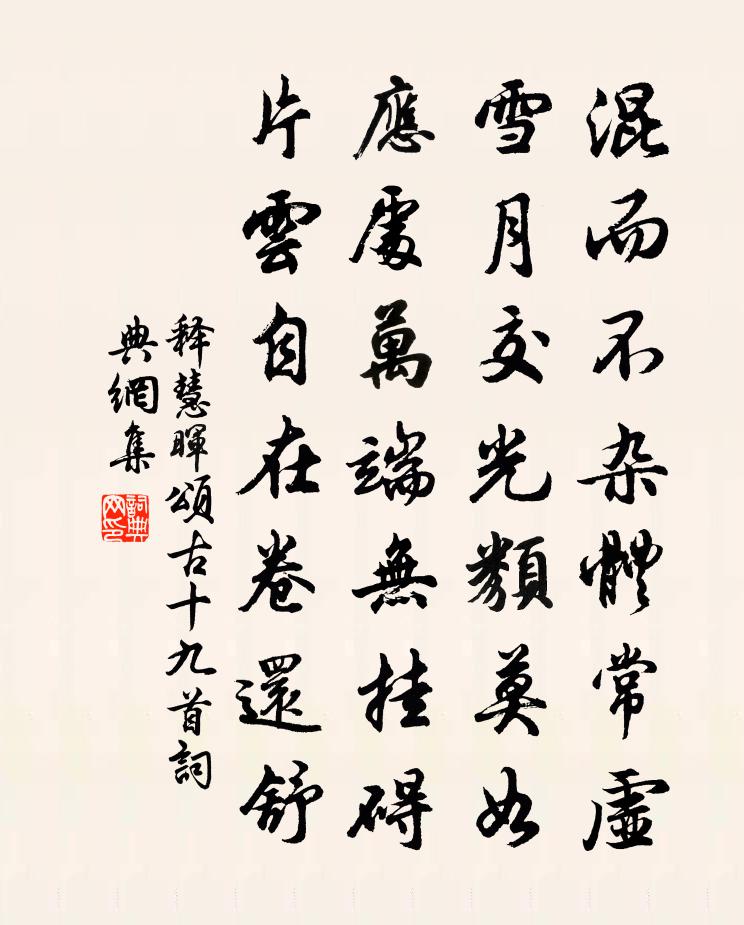 混而不杂體常虛
雪月交光類莫如
應處萬端無挂碍
片雲自在卷還舒
释慧暉頌古十九首詞
典網集
詞典網印